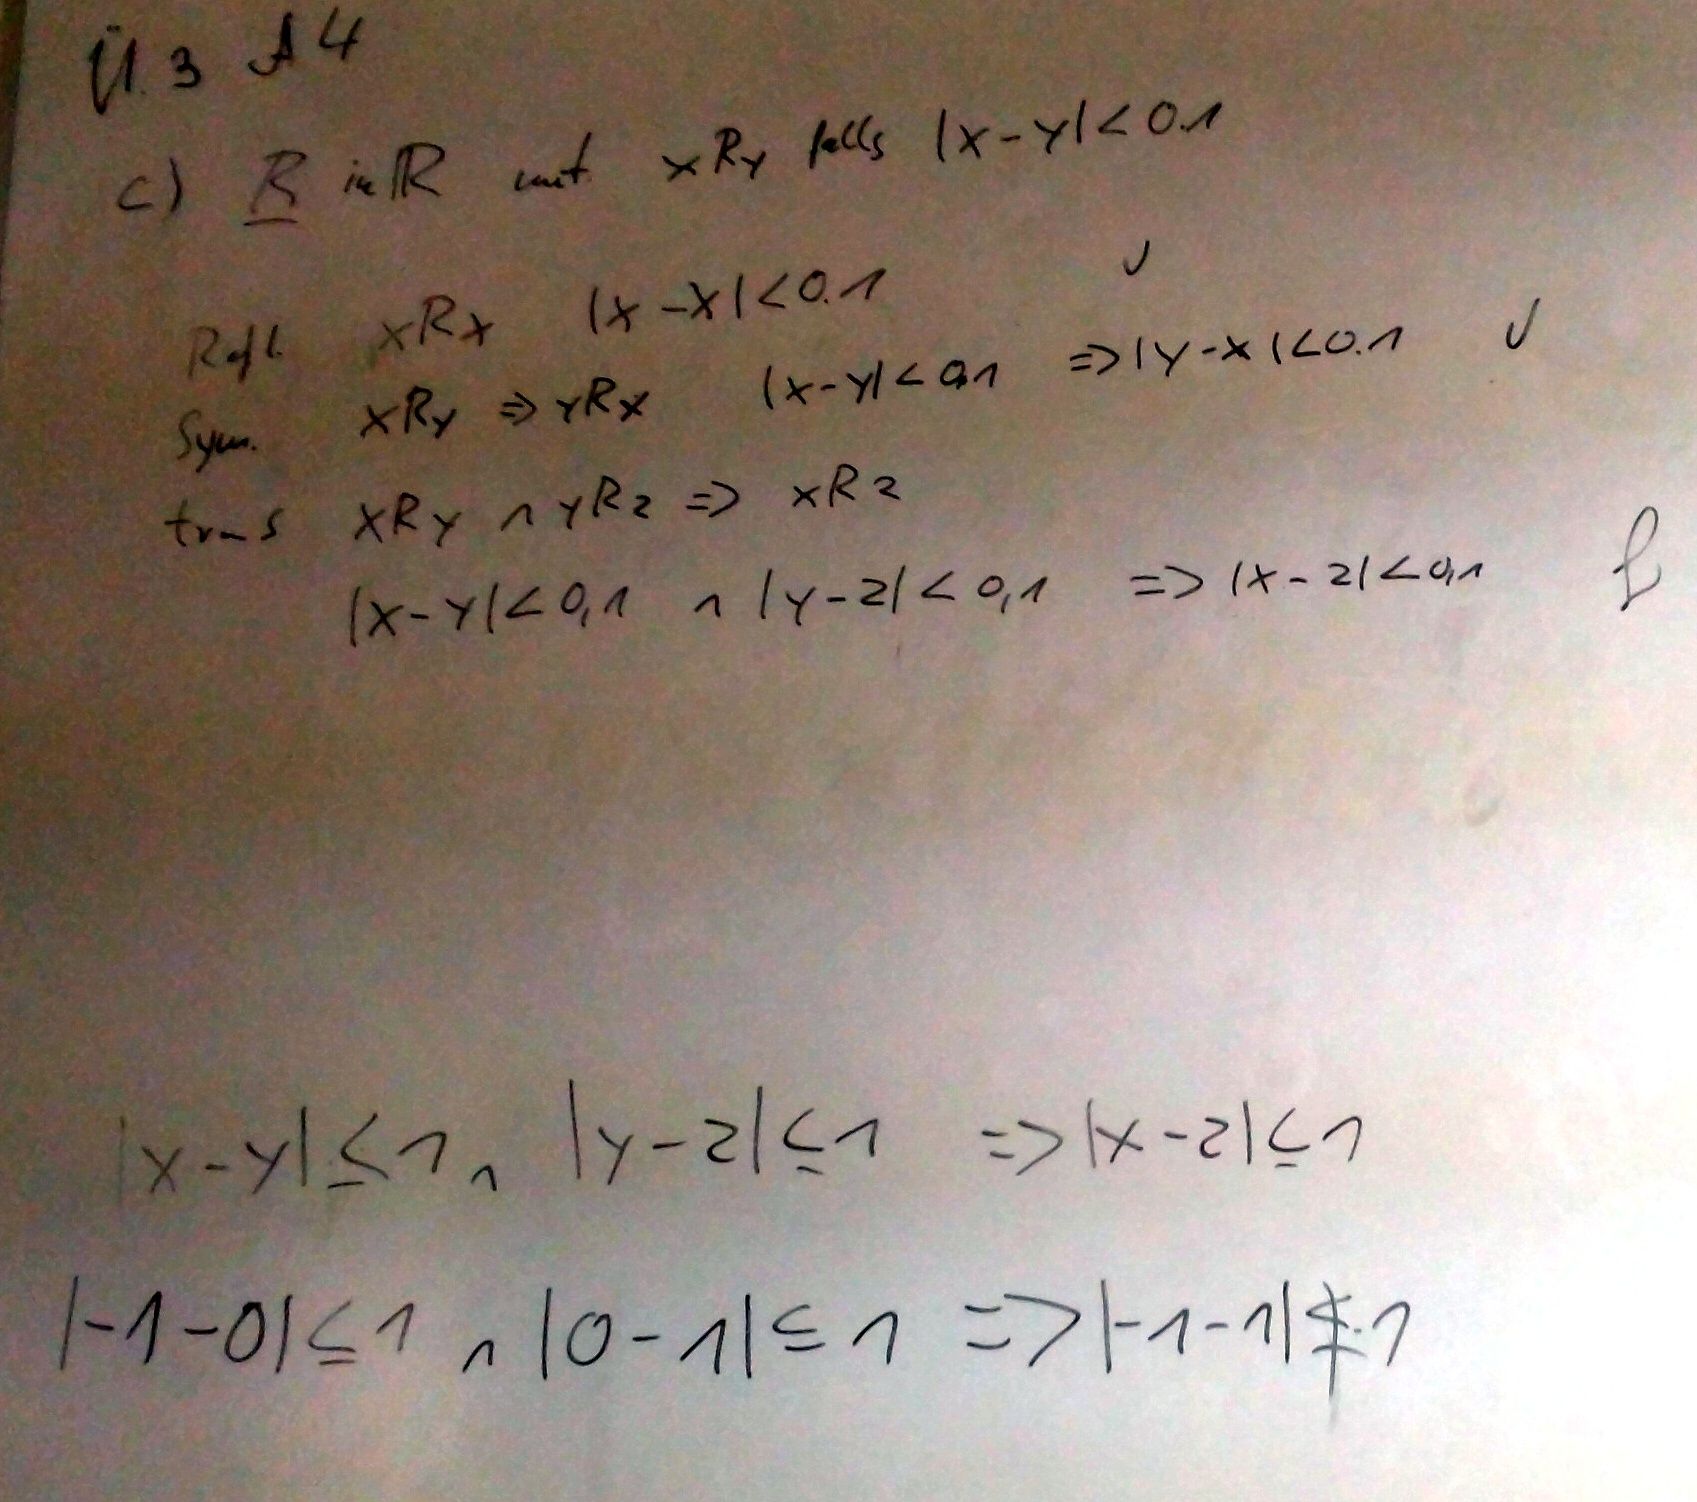 Ü. 3 A 4
c) R in ℝ mit xRy falls |x-y|<0.1
Refl. xRx |x-x|<0.1 ✓
Sym. xRy ⇒ yRx |x-y|<0,1 ⇒ |y-x|<0.1 ✓
trans xRy ∧ yRz ⇒ xRz
|x-y|<0,1 ∧ |y-z|<0,1 => |x-z|<0,1 f
|x-y|≤1 ∧ |y-z|≤1 => |x-z|≤1
|-1-0|≤1 ∧ |0-1|≤1 => |-1-1|≰1